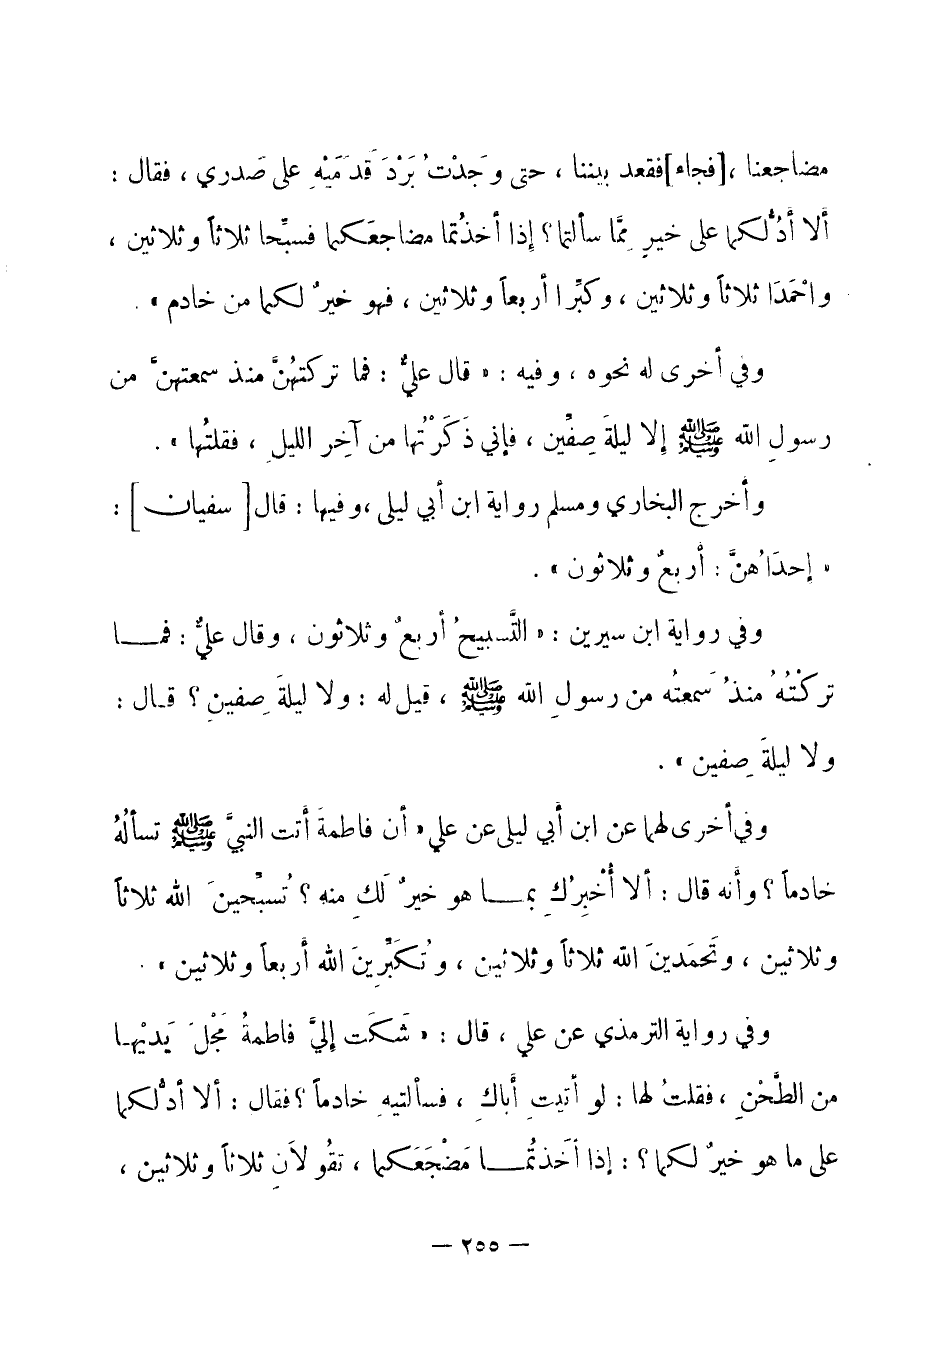 مضاجعنا ،[فجاء]فقعد بيننا ، حتى وَجدْتُ بَرْدَ قَدَمَيْهِ على صَدري ، فقال :
ألا أدُلُّكما على خيرٍ مِمَّا سألتما؟ إذا أخذتُما مضاجعَكما فسبِّحا ثلاثاً وثلاثين ،
واحْمَدَا ثلاثاً وثلاثين ، وكبِّرا أربعاً وثلاثين ، فهو خيرٌ لكما من خادم » .
وفي أخرى له نحوه ، وفيه : « قال عليٌّ : فما تركتهُنَّ منذ سمعتهنَّ من
رسولِ الله ﷺ إلا ليلةَ صِفِّين ، فإني ذَكَرْتُها من آخِر الليلِ ، فقلتُها » .
وأخرج البخاري ومسلم رواية ابن أبي ليلى ،وفيها : قال[ سفيان ] :
« إحدَاهُنَّ : أربعٌ وثلاثون » .
وفي رواية ابن سيرين : « التَّسبيحُ أربعٌ وثلاثون ، وقال عليٌّ : فما
تركْتُهُ منذُ سَمعتُه من رسولِ الله ﷺ ، قيل له : ولا ليلةَ صِفين ؟ قال :
ولا ليلةَ صِفين » .
وفي أخرى لهما عن ابن أبي ليلى عن علي « أن فاطمةَ أتت النبيَّ ﷺ تسألُهُ
خادماً ؟ وأنه قال : ألا أُخْبِرُكِ بما هو خيرٌ لَكِ منه ؟ تُسبِّحينَ الله ثلاثاً
وثلاثين ، وتَحمَدينَ الله ثلاثاً وثلاثين ، وتُكَبِّرِينَ الله أربعاً وثلاثين » .
وفي رواية الترمذي عن علي ، قال : « شَكَت إليَّ فاطمةُ مَجْلَ يَديْها
من الطَّحْنِ ، فقلتُ لها : لو أتيتِ أباكِ ، فسألتيهِ خادماً ؟ فقال : ألا أدُلُّكما
على ما هو خيرٌ لكما ؟ : إذا أخَذتُما مَضْجَعَكما ، تقُولاَنِ ثلاثاً وثلاثين ،
— ٢٥٥ —